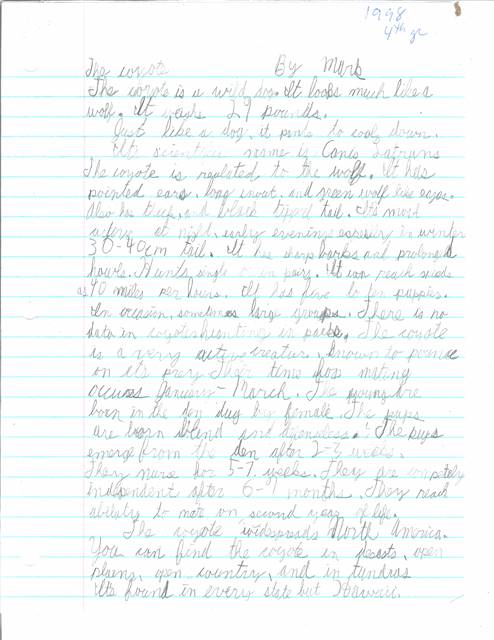 1998
4th gr
The coyote By Mark
The coyote is a wild dog. It looks much like a
wolf. It weighs 29 pounds.
Just like a dog, it pants to cool down.
Its scientific name is Canis Latrans
The coyote is related to the wolf. It has
pointed ears, long snout, and green wolf like eyes.
Also has thick, and black tipped tail. Its most
active at night, early evenings in winter
30-40cm tail. It has sharp barks and prolonged
howls. Hunts, single or in pairs. It can reach speeds
as 40 miles per hours. It has five to ten puppies.
In occasion, sometimes large groups. There is no
data in coyotes hunting in packs. The coyote
is a very active creature, known to pounce
on its prey. Their time for mating
occures January-March. The young are
born in the den dug by female. The pups
are born blind and The pups
emerge from the den after 2-3 weeks.
They nurse for 5-7 weeks. They are completely
independent after 6-9 months. They reach
ability to mate on second year of life.
The coyote widespreads North America.
You can find the coyote in desects, open
plains, open country, and in tundras
Its found in every state but Hawaii.